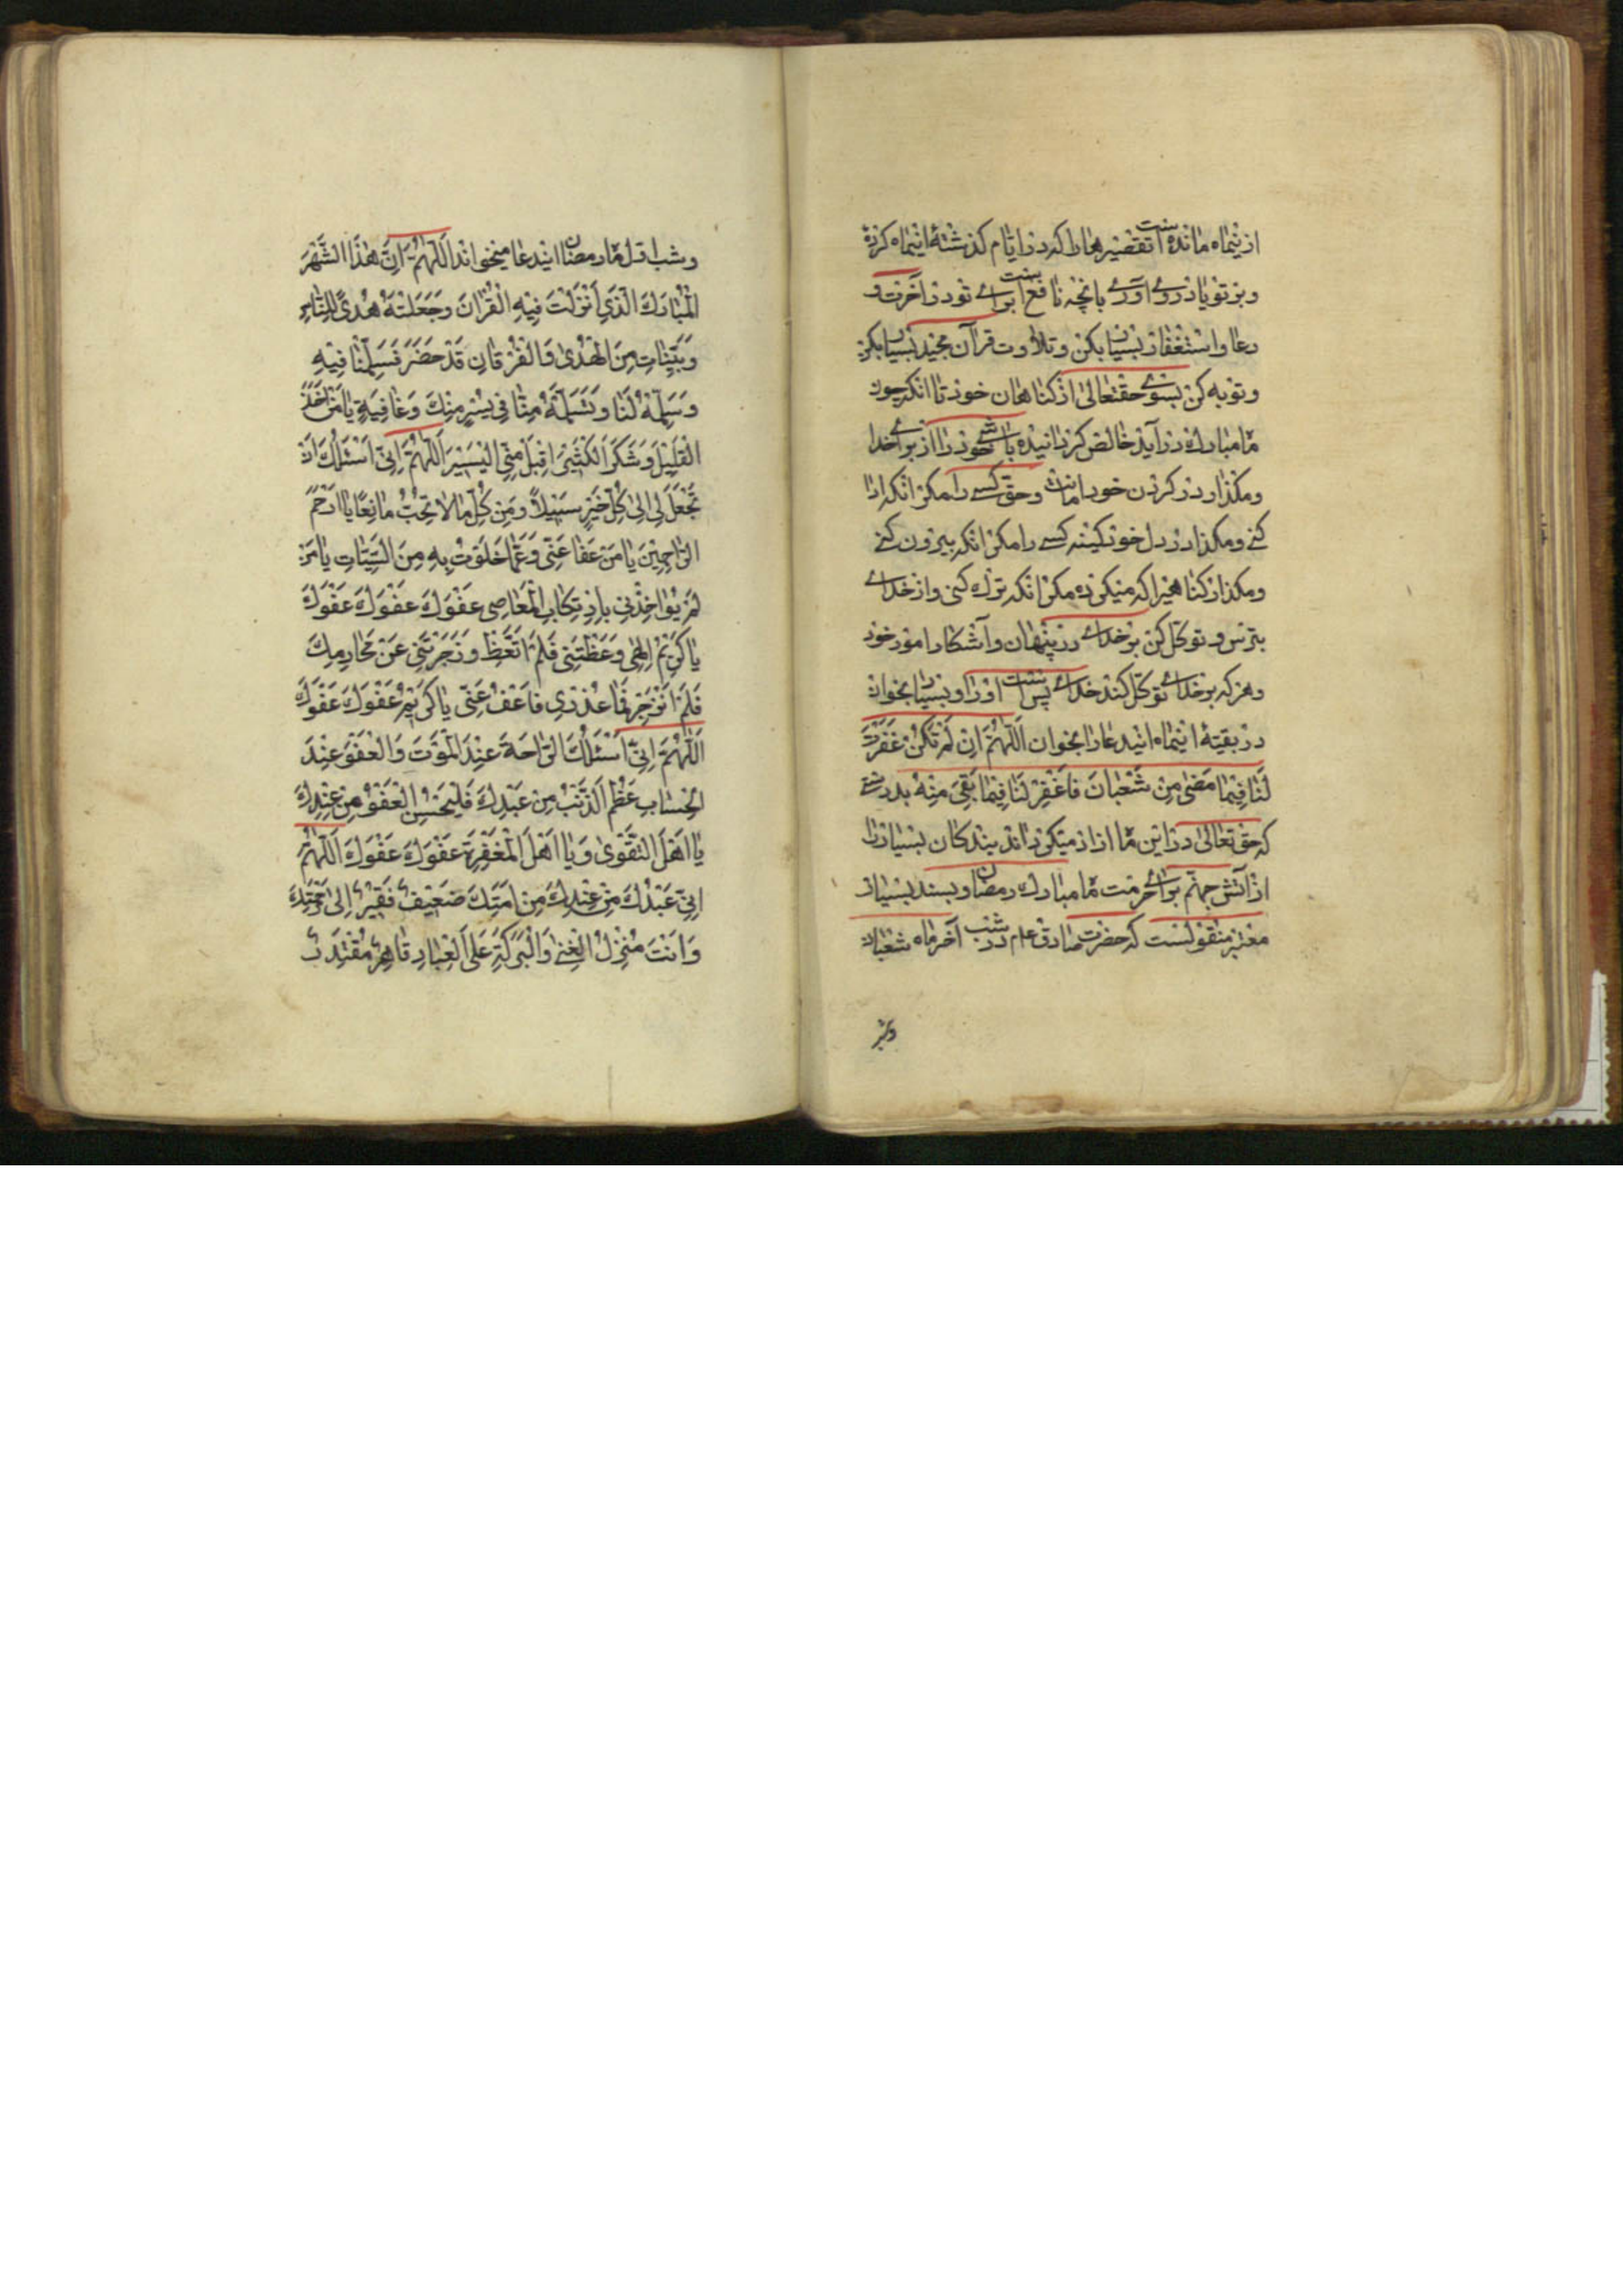 ازینماه مانده است تقصیرهارا که در ایام گذشتهٔ اینماه کردهٔ
و بر تو باد رو آوردن بانچه نافع است برای تو در آخرت و
دعا و استغفار بسیار بکن و تلاوت قرآن مجید بسیار بکن
و توبه کن بسوی حقتعالی از گناهان خود تا انکه چون
ماه مبارک در آید خالص گردانیده باشی خود را از برای خدا
و مگذار در گردن خود امانت و حق کسی را مگر انکه ادا
کنی و مگذار در دل خود کینه کسی را مگر انکه بیرون کنی
و مگذار گناهیرا که میکردهٔ مگر انکه ترک کنی و از خدا
بترس و توکل کن بر خدا در پنهان و آشکار امور خود
و هرکه بر خدا توکل کند خدا بس است او را و بسیار بخوان
در بقیهٔ اینماه ایندعا را بخوان اَللّٰهُمَّ اِنْ لَمْ تَكُنْ غَفَرْتَ
لَنَا فِيمَا مَضٰى مِنْ شَعْبَانَ فَاغْفِرْ لَنَا فِيمَا بَقِيَ مِنْهُ بدرستی
که حق تعالی در این ماه ازاد میگرداند بندگان بسیار را
از آتش جهنم برای حرمت ماه مبارک رمضان و بسند بسیار
معتبر منقولست که حضرت صادق ع م در شب آخر ماه شعبان
و شب اول ماه رمضان ایندعا میخواند اَللّٰهُمَّ اِنَّ هٰذَا الشَّهْرَ
الْمُبَارَكَ الَّذِي اَنْزَلْتَ فِيهِ الْقُرْانَ وَجَعَلْتَهُ هُدًى لِلنَّاسِ
وَبَيِّنَاتٍ مِنَ الْهُدٰى وَالْفُرْقَانِ قَدْ حَضَرَ فَسَلِّمْنَا فِيهِ
وَسَلِّمْهُ لَنَا وَتَسَلَّمْهُ مِنَّا فِي يُسْرٍ مِنْكَ وَعَافِيَةٍ يَا مَنْ اَخَذَ
الْقَلِيلَ وَشَكَرَ الْكَثِيرَ اقْبَلْ مِنِّي الْيَسِيرَ اَللّٰهُمَّ اِنِّي اَسْئَلُكَ اَنْ
تَجْعَلَ لِي اِلٰى كُلِّ خَيْرٍ سَبِيلًا وَمِنْ كُلِّ مَا لَا تُحِبُّ مَانِعًا يَا اَرْحَمَ
الرَّاحِمِينَ يَا مَنْ عَفَا عَنِّي وَعَمَّا خَلَوْتُ بِهِ مِنَ السَّيِّئَاتِ يَا مَنْ
لَمْ يُؤَاخِذْنِي بِارْتِكَابِ الْمَعَاصِي عَفْوَكَ عَفْوَكَ عَفْوَكَ
يَا كَرِيمُ اِلٰهِي وَعَظْتَنِي فَلَمْ اَتَّعِظْ وَزَجَرْتَنِي عَنْ مَحَارِمِكَ
فَلَمْ اَنْزَجِرْ فَمَا عُذْرِي فَاعْفُ عَنِّي يَا كَرِيمُ عَفْوَكَ عَفْوَكَ
اَللّٰهُمَّ اِنِّي اَسْئَلُكَ الرَّاحَةَ عِنْدَ الْمَوْتِ وَالْعَفْوَ عِنْدَ
الْحِسَابِ عَظُمَ الذَّنْبُ مِنْ عَبْدِكَ فَلْيَحْسُنِ الْعَفْوُ مِنْ عِنْدِكَ
يَا اَهْلَ التَّقْوٰى وَيَا اَهْلَ الْمَغْفِرَةِ عَفْوَكَ عَفْوَكَ اَللّٰهُمَّ
اِنِّي عَبْدُكَ مِنْ عَبْدِكَ مِنْ اَمَتِكَ ضَعِيفٌ فَقِيرٌ اِلٰى رَحْمَتِكَ
وَاَنْتَ مُنْزِلُ الْغِنٰى وَالْبَرَكَةِ عَلَى الْعِبَادِ قَاهِرٌ مُقْتَدِرٌ